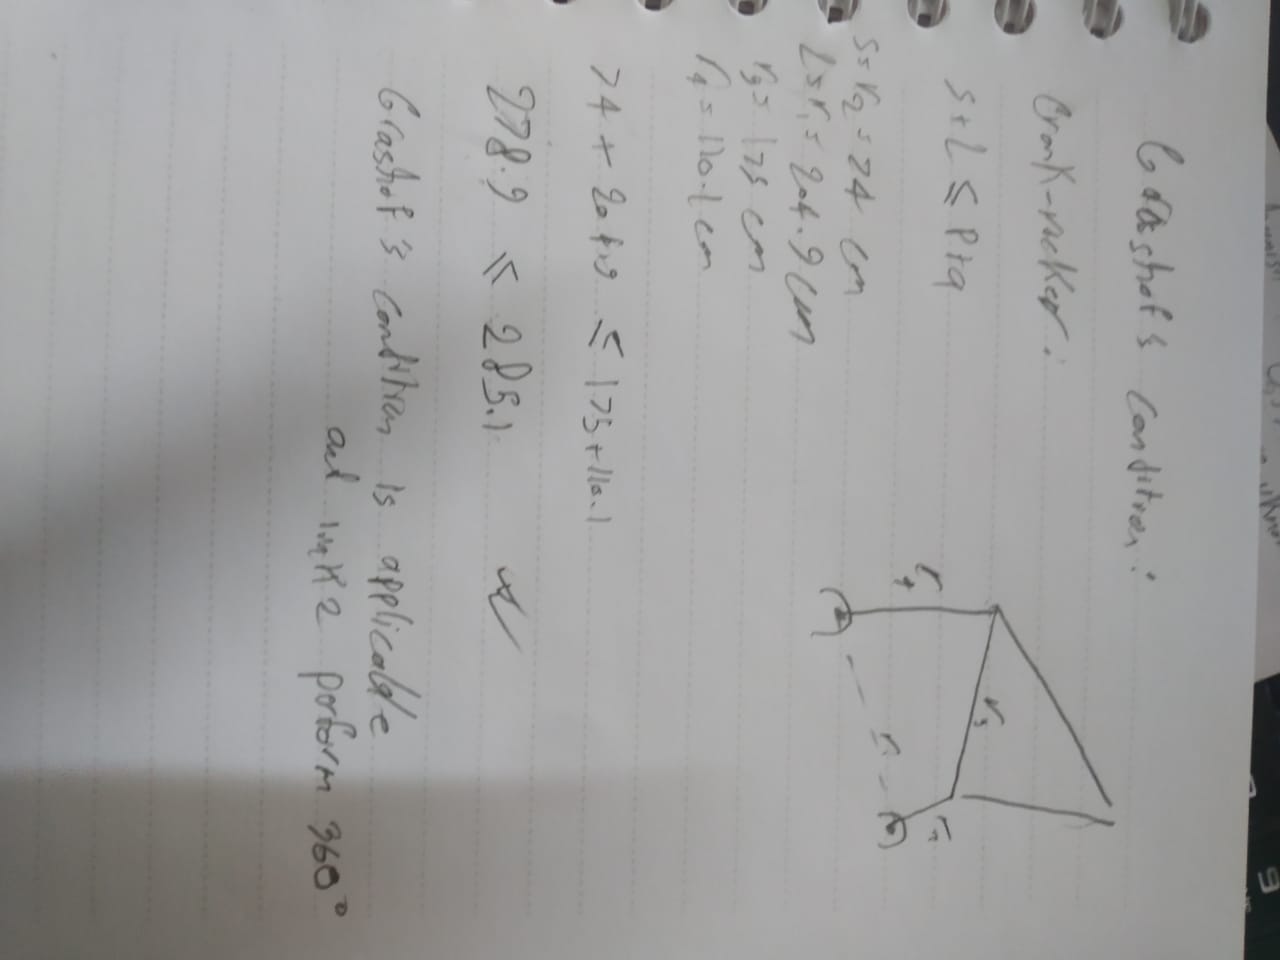 Grashof's condition:
Crank-rocker:
S+L ≤ P+q
S=r2=74 cm
L=r1=204.9 cm
r3=175 cm
r4=110.1 cm
74+204.9 ≤ 175+110.1
278.9 ≤ 285.1 ✓
Grashof's condition is applicable
and link 2 perform 360°
r4
r3
r1
r2
9